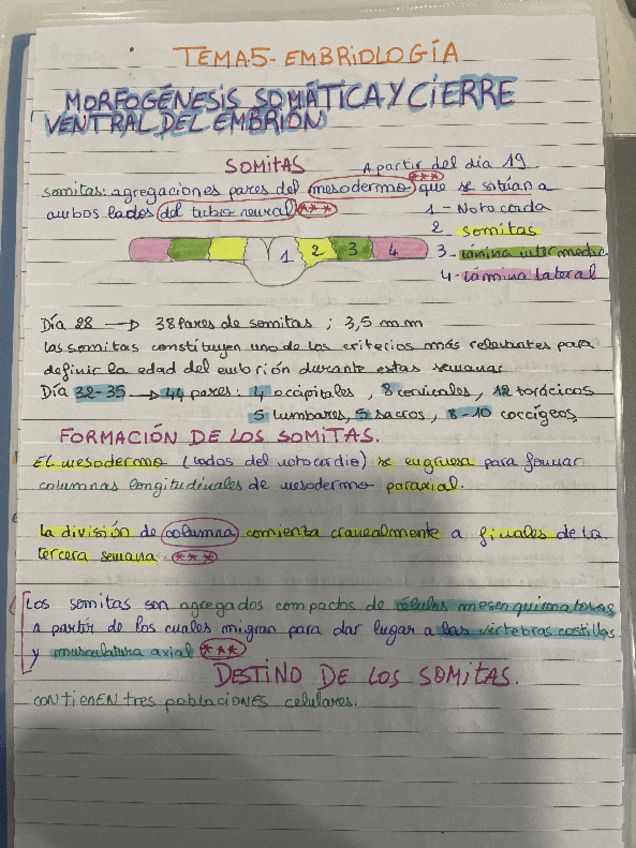 TEMA.5- EMBRIOLOGÍA
MORFOGÉNESIS SOMÁTICA Y CIERRE
VENTRAL DEL EMBRIÓN
SOMITAS A partir del día 19
somitas: agregaciones pares del mesodermo *** que se sitúan a
ambos lados del tubio neural ***
1 - Notocorda
2 somitas
3 - Lámina intermedia
4 - Lámina lateral
1 2 3 4
Día 28 → 38 Pares de somitas ; 3,5 mm
Los somitas constituyen uno de los criterios más relevantes para
definir la edad del embrión durante estas semanas
Día 32-35 → 44 pares: 4 occipitales, 8 cervicales, 12 torácicos
5 lumbares, 5 sacros, 8-10 coccígeos
FORMACIÓN DE LOS SOMITAS.
El mesodermo (lados del notocordio) se engruesa para formar
columnas longitudinales de mesodermo paraxial.
La división de columna comienza cranealmente a finales de la
tercera semana ***
Los somitas son agregados compactos de células mesenquimatosas
a partir de los cuales migran para dar lugar a las vértebras costillas
y musculatura axial ***
DESTINO DE LOS SOMITAS.
CONTIENEN tres poblaciones celulares.